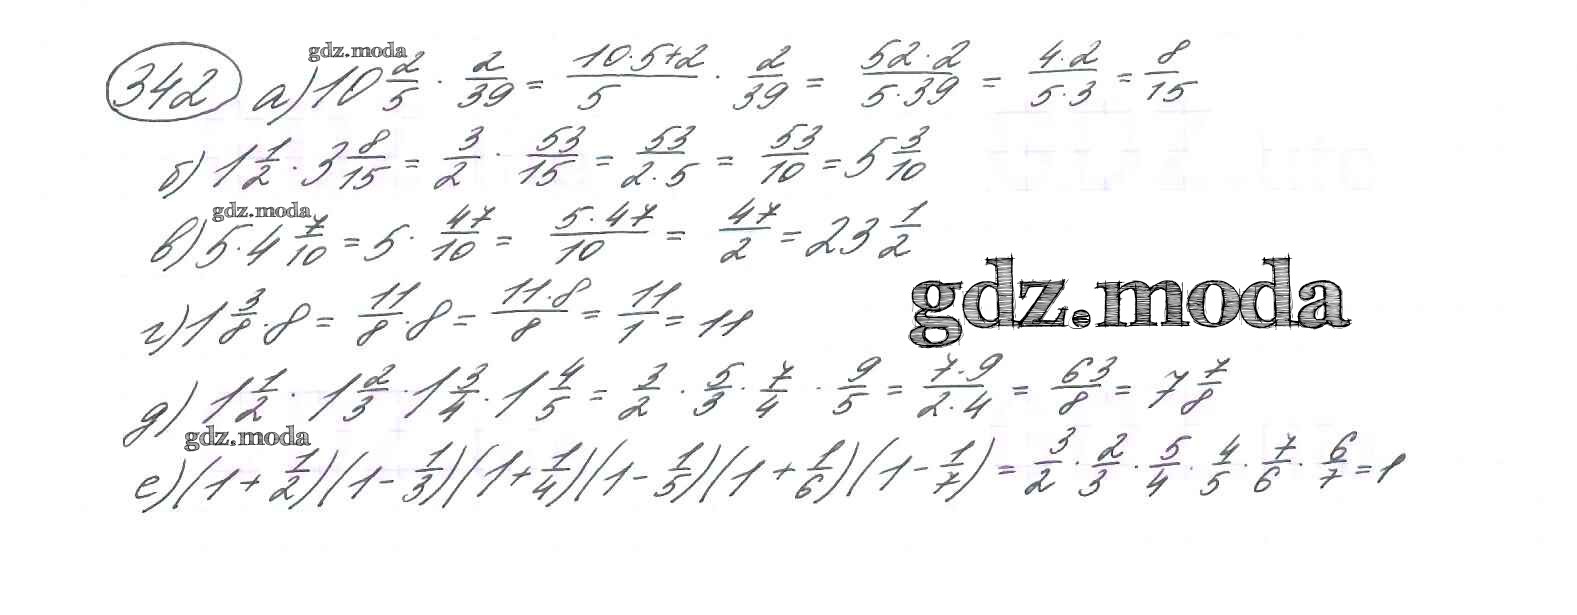 gdz.moda
342 а) 10 2/5 · 2/39 = (10·5+2)/5 · 2/39 = (52·2)/(5·39) = (4·2)/(5·3) = 8/15
б) 1 1/2 · 3 8/15 = 3/2 · 53/15 = 53/(2·5) = 53/10 = 5 3/10
gdz.moda
в) 5 · 4 7/10 = 5 · 47/10 = (5·47)/10 = 47/2 = 23 1/2
gdz.moda
г) 1 3/8 · 8 = 11/8 · 8 = (11·8)/8 = 11/1 = 11
д) 1 1/2 · 1 2/3 · 1 3/4 · 1 4/5 = 3/2 · 5/3 · 7/4 · 9/5 = (7·9)/(2·4) = 63/8 = 7 7/8
gdz.moda
е) (1 + 1/2)(1 - 1/3)(1 + 1/4)(1 - 1/5)(1 + 1/6)(1 - 1/7) = 3/2 · 2/3 · 5/4 · 4/5 · 7/6 · 6/7 = 1